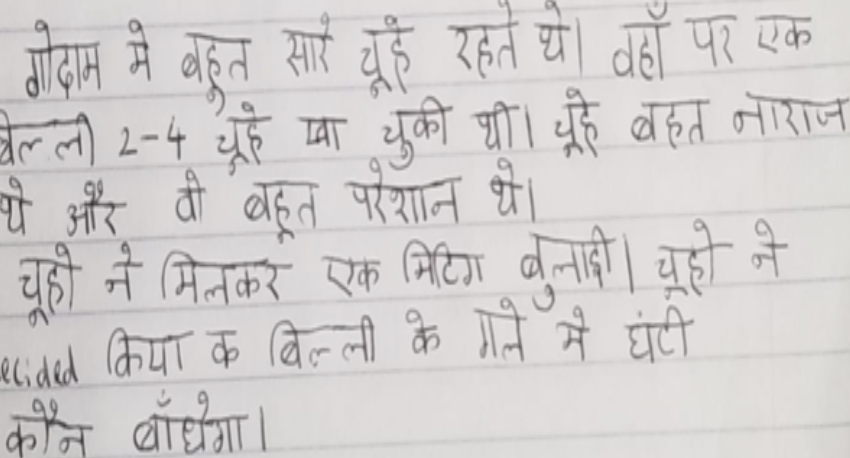 गोदाम मे बहुत सारे चूहे रहते थे। वहाँ पर एक
बिल्ली 2-4 चूहे खा चुकी थी। चूहे बहत नाराज
थे और वो बहुत परेशान थे।
चूहो ने मिलकर एक मिटिग बुलाई। चूहो ने
ecided किया क बिल्ली के गले मे घंटी
कौन बाँधेगा।